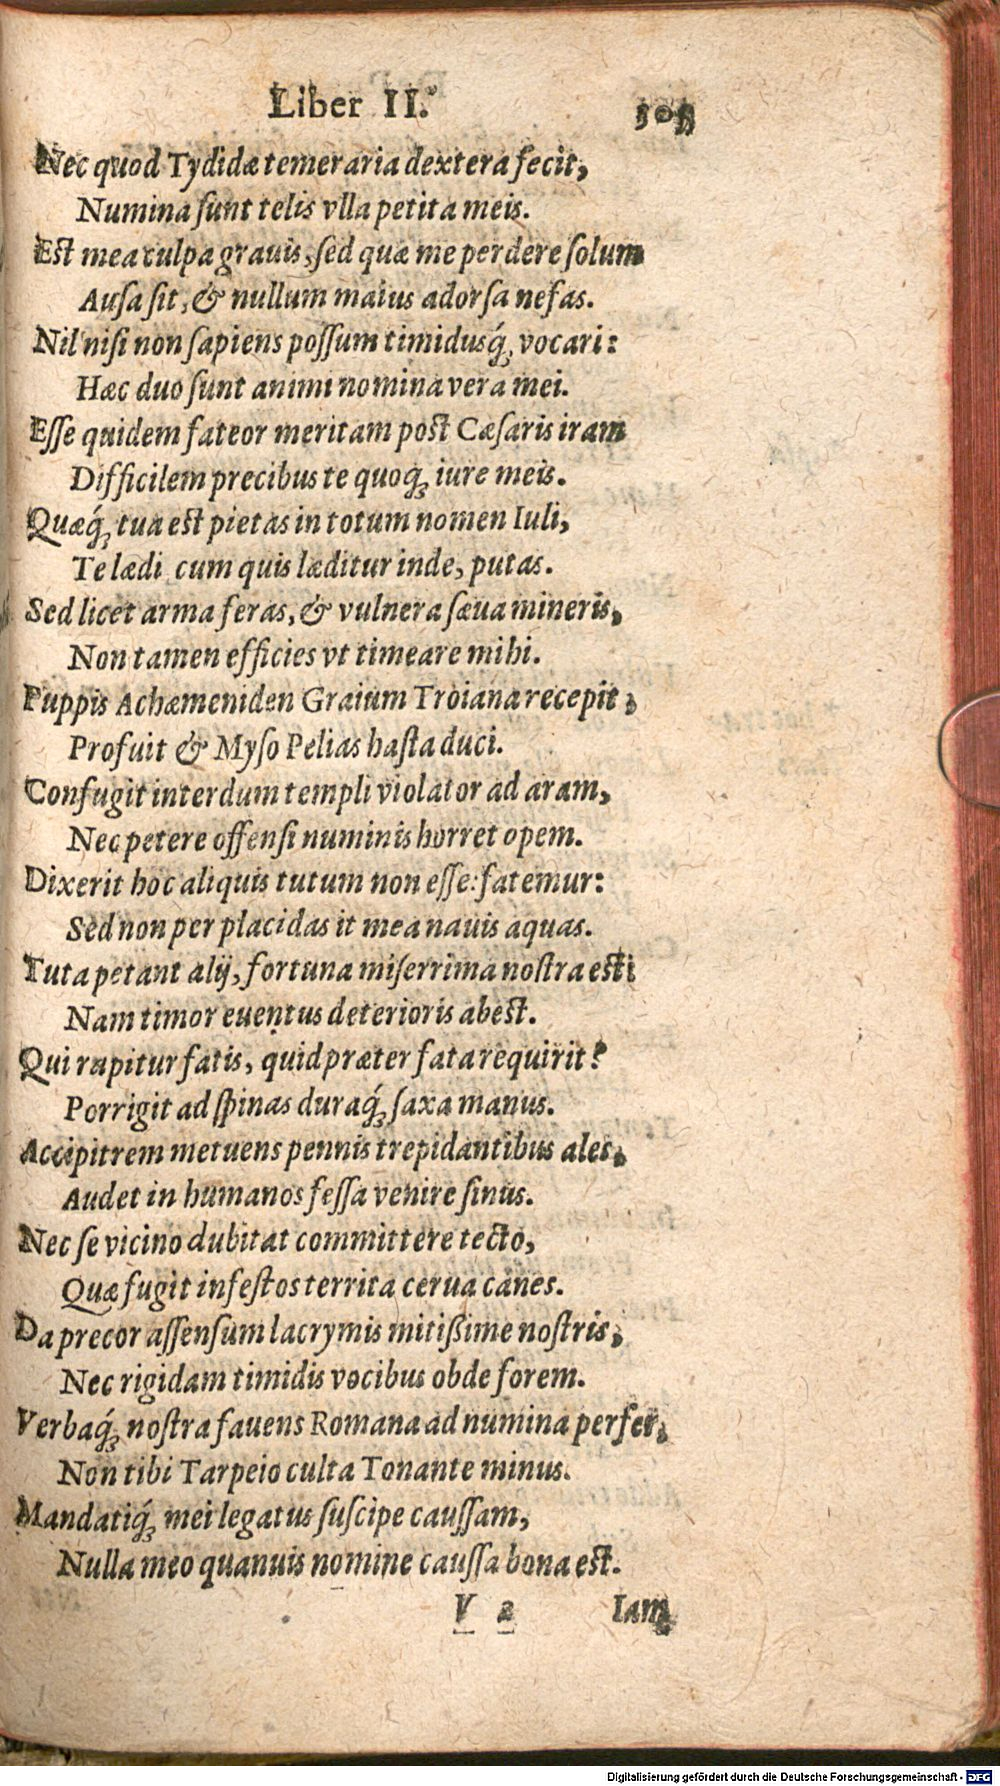 Liber II. 305
Nec quod Tydidæ temeraria dextera fecit,
Numina ſunt telis vlla petita meis.
Eſt mea culpa grauis, ſed quæ me perdere ſolum
Auſa ſit, & nullum maius adorſa nefas.
Nil niſi non ſapiens poſſum timidusq́; vocari:
Hæc duo ſunt animi nomina vera mei.
Eſſe quidem fateor meritam poſt Cæſaris iram
Difficilem precibus te quoq; iure meis.
Quæq́; tua eſt pietas in totum nomen Iuli,
Te lædi cum quis læditur inde, putas.
Sed licet arma feras, & vulnera ſæua mineris,
Non tamen efficies vt timeare mihi.
Puppis Achæmeniden Graium Troiana recepit;
Profuit & Myſo Pelias haſta duci.
Confugit interdum templi violator ad aram,
Nec petere offenſi numinis horret opem.
Dixerit hoc aliquis tutum non eſſe: fatemur:
Sed non per placidas it mea nauis aquas.
Tuta petant alij, fortuna miſerrima noſtra eſt:
Nam timor euentus deterioris abeſt.
Qui rapitur fatis, quid præter fata requirit?
Porrigit ad ſpinas duraq́; ſaxa manus.
Accipitrem metuens pennis trepidantibus ales,
Audet in humanos feſſa venire ſinus.
Nec ſe vicino dubitat committere tecto,
Quæ fugit infeſtos territa cerua canes.
Da precor aſſenſum lacrymis mitißime noſtris,
Nec rigidam timidis vocibus obde forem.
Verbaq́; noſtra fauens Romana ad numina perfer,
Non tibi Tarpeio culta Tonante minus.
Mandatiq́; mei legatus ſuſcipe cauſſam,
Nulla meo quanuis nomine cauſſa bona eſt.
V 2 Iam
Digitalisierung gefördert durch die Deutsche Forschungsgemeinschaft - DFG